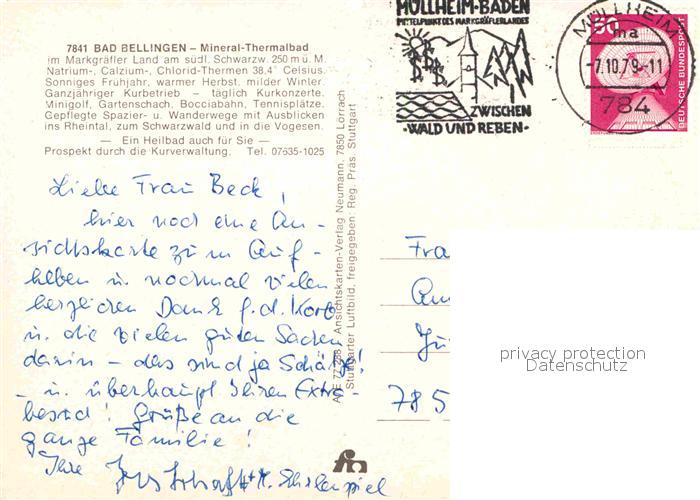 7841 BAD BELLINGEN – Mineral-Thermalbad
im Markgräfler Land am südl. Schwarzw. 250 m ü. M.
Natrium-, Calzium-, Chlorid-Thermen 38,4° Celsius.
Sonniges Frühjahr, warmer Herbst, milder Winter.
Ganzjähriger Kurbetrieb – täglich Kurkonzerte.
Minigolf, Gartenschach, Bocciabahn, Tennisplätze.
Gepflegte Spazier- u. Wanderwege mit Ausblicken
ins Rheintal, zum Schwarzwald und in die Vogesen.
— Ein Heilbad auch für Sie —
Prospekt durch die Kurverwaltung. Tel. 07635-1025
Liebe Frau Beck,
hier noch eine An-
sichtskarte zum Auf-
heben u. nochmal vielen
herzlichen Dank f. d. Korb
u. die vielen guten Sachen
darin – das sind ja Schätze!
– u. überhaupt Ihren Extra-
besuch! Grüße an die
ganze Familie!
Ihre
Ansichtskarten-Verlag Neumann, 7850 Lörrach
Stuttgarter Luftbild, freigegeben: Reg. Präs. Stuttgart
MÜLLHEIM-BADEN
MITTELPUNKT DES MARKGRÄFLERLANDES
ZWISCHEN
-WALD UND REBEN-
MÜLLHEIM
ma
-7.10.79-11
784
50
DEUTSCHE BUNDESPOST
Fra
785
privacy protection
Datenschutz